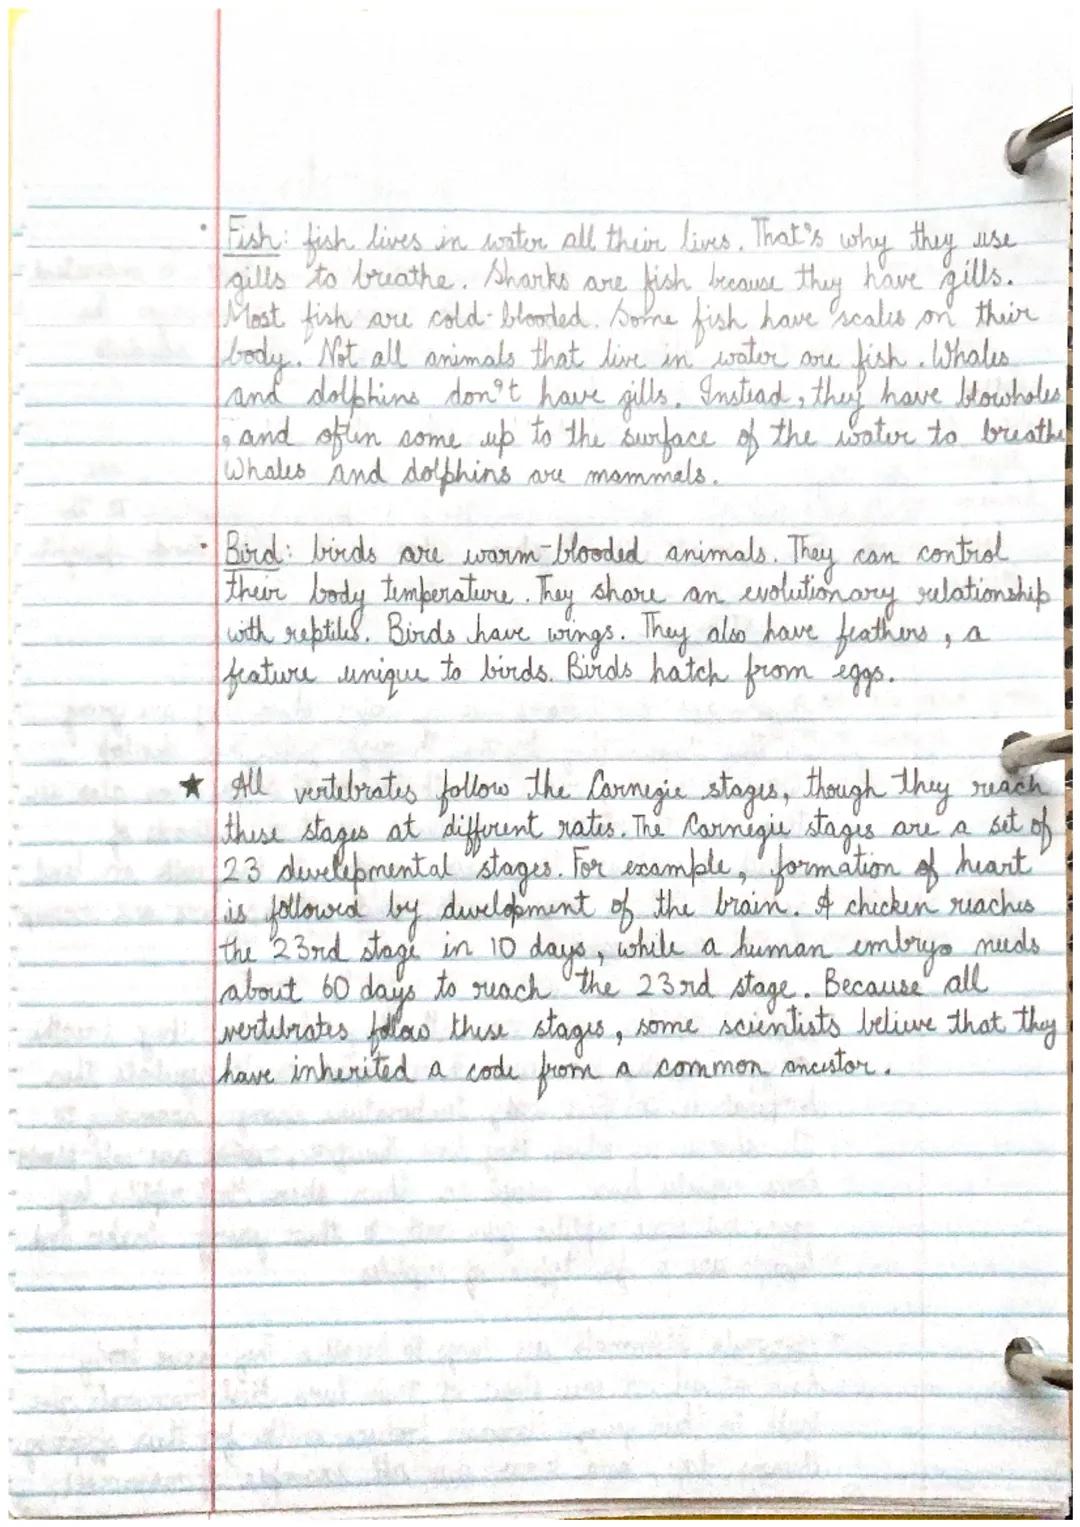 Fish: fish lives in water all their lives. That's why they use
gills to breathe. Sharks are fish because they have gills.
Most fish are cold-blooded. Some fish have scales on their
body. Not all animals that live in water are fish. Whales
and dolphins don't have gills. Instead, they have blowholes
, and often come up to the surface of the water to breathe
Whales and dolphins are mammals.
Bird: birds are warm-blooded animals. They can control
their body temperature. They share an evolutionary relationship
with reptiles. Birds have wings. They also have feathers, a
feature unique to birds. Birds hatch from eggs.
★ All vertebrates follow the Carnegie stages, though they reach
these stages at different rates. The Carnegie stages are a set of
23 develepmental stages. For example, formation of heart
is followed by development of the brain. A chicken reaches
the 23rd stage in 10 days, while a human embryo needs
about 60 days to reach the 23rd stage. Because all
vertebrates follow these stages, some scientists believe that they
have inherited a code from a common ancestor.